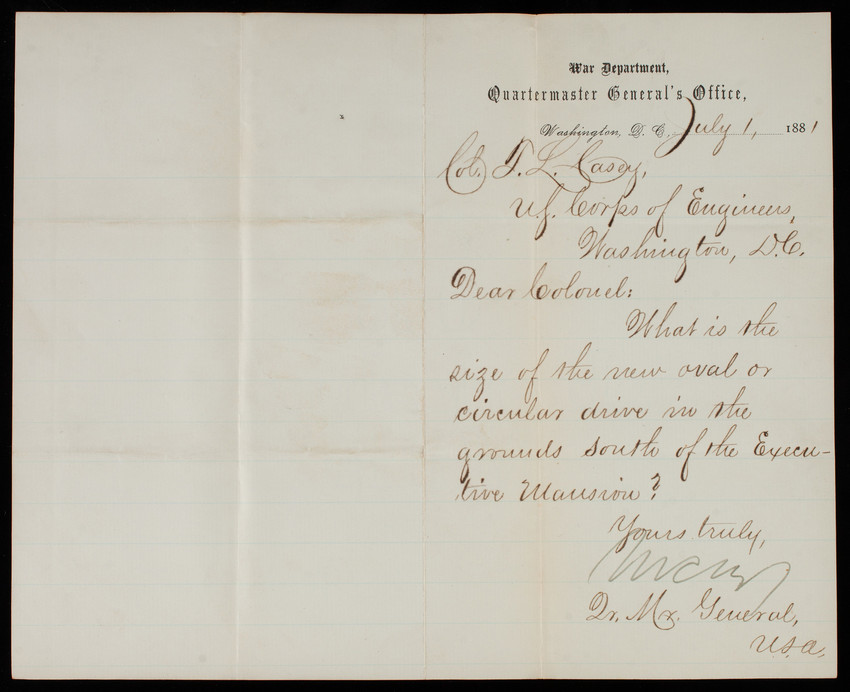 War Department,
Quartermaster General's Office,
Washington, D. C. July 1, 1881
Col. T. L. Casey,
U.S. Corps of Engineers,
Washington, D.C.
Dear Colonel:
What is the
size of the new oval or
circular drive in the
grounds south of the Execu-
tive Mansion?
Yours truly,
Qr. Mr. General,
U.S.A.